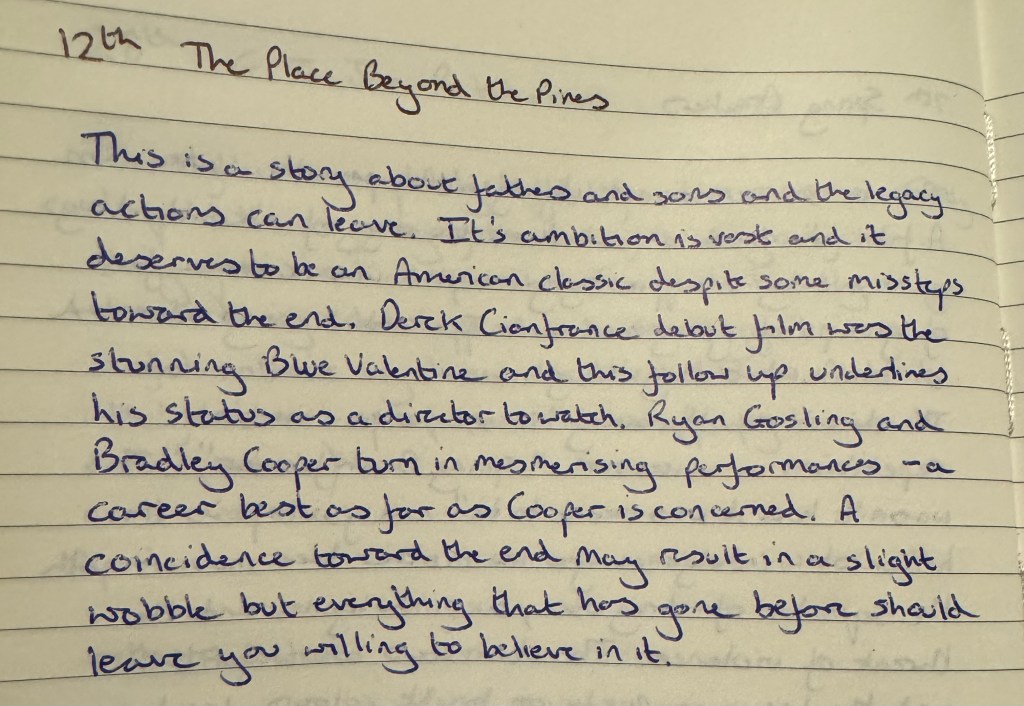 12th The Place Beyond the Pines
This is a story about fathers and sons and the legacy
actions can leave. It's ambition is vast and it
deserves to be an American classic despite some missteps
toward the end. Derek Cianfrance debut film was the
stunning Blue Valentine and this follow up underlines
his status as a director to watch. Ryan Gosling and
Bradley Cooper turn in mesmerising performances - a
career best as far as Cooper is concerned. A
coincidence toward the end may result in a slight
wobble but everything that has gone before should
leave you willing to believe in it.